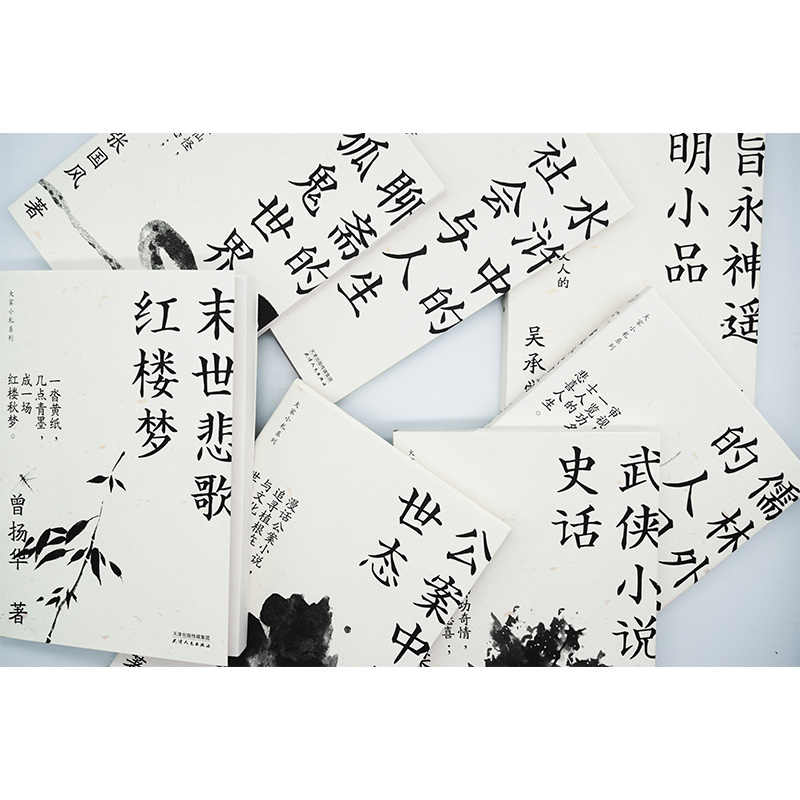 仙怪，
张国风 著
聊斋的
狐鬼世界
水浒中的
社会与人生
人人的
天津出版传媒集团
天津人民出版社
旨永神遥
明小品
吴承
大家小札系列
末世悲歌
红楼梦
一沓黄纸，
几点青墨，
成一场
红楼秋梦。
曾扬华 著
天津出版传媒集团
天津人民出版社
大家小札系列
公案中
世态
漫话公案小说，
追寻植根在
与文化
世
著
武侠小说
史话
功奇情，
喜；
大家小札系列
儒林外
的人
宙视
一览功名
士人的
悲喜人生。